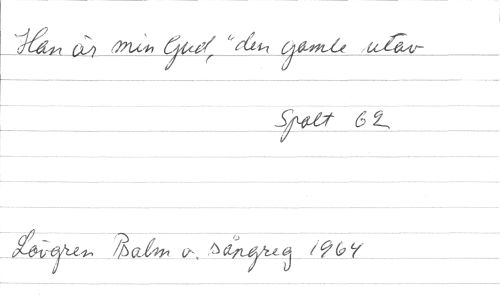 Han är min Gud, "den gamle utav
Spalt 62
Lövgren Psalm o. sångreg 1964